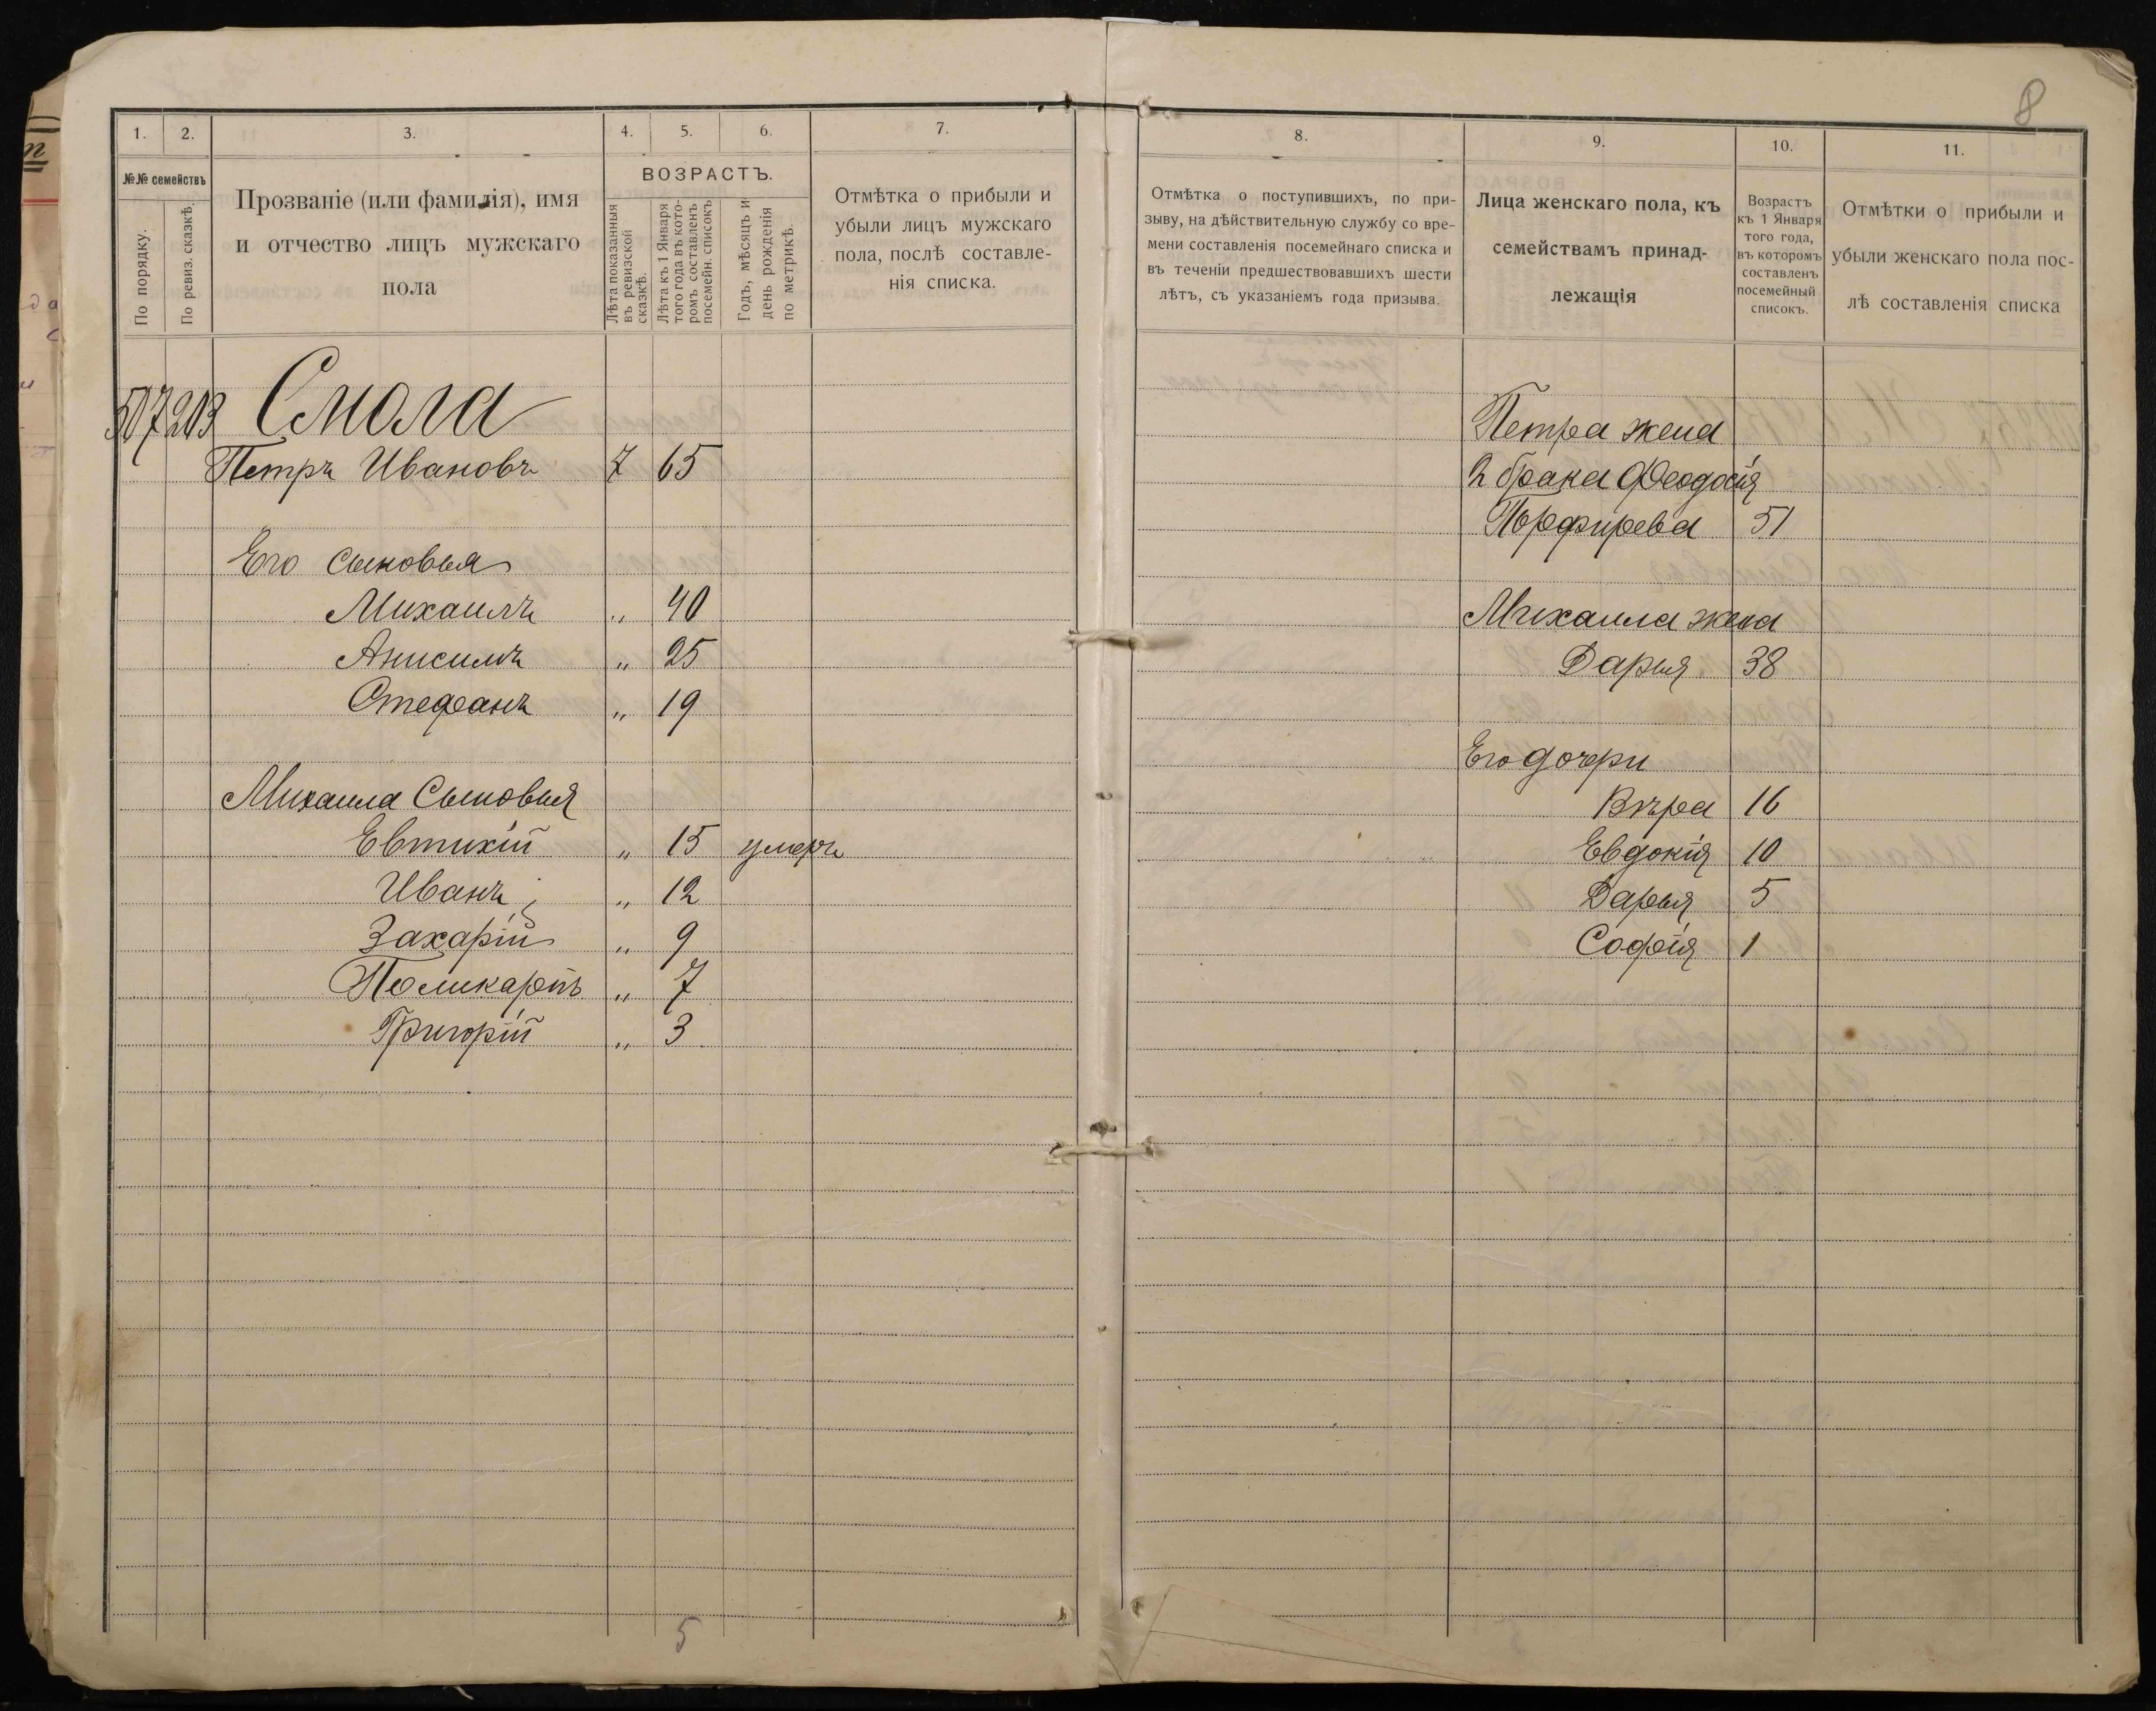 8
1. 2. 3. 4. 5. 6. 7.
№№ семействъ
По порядку.
По ревиз. сказкѣ.
Прозваніе (или фамилія), имя
и отчество лицъ мужскаго
пола
ВОЗРАСТЪ.
Лѣта показанныя
въ ревизской
сказкѣ.
Лѣта къ 1 Января
того года въ кото-
ромъ составленъ
посемейн. списокъ
Годъ, мѣсяцъ и
день рожденія
по метрикѣ.
Отмѣтка о прибыли и
убыли лицъ мужскаго
пола, послѣ составле-
нія списка.
507 203 Смола
Петръ Ивановъ 7 65
Его Сыновья
Михаилъ „ 40
Анисимъ „ 25
Стефанъ „ 19
Михаила Сыновья
Евтихій „ 15 умеръ
Иванъ „ 12
Захарій „ 9
Поликарпъ „ 7
Григорій „ 3
5
8. 9. 10. 11.
Отмѣтка о поступившихъ, по при-
зыву, на дѣйствительную службу со вре-
мени составленія посемейнаго списка и
въ теченіи предшествовавшихъ шести
лѣтъ, съ указаніемъ года призыва.
Лица женскаго пола, къ
семействамъ принад-
лежащія
Возрастъ
къ 1 Января
того года,
въ которомъ
составленъ
посемейный
списокъ.
Отмѣтки о прибыли и
убыли женскаго пола пос-
лѣ составленія списка
Петра жена
2 брака Феодосія
Порфирева 51
Михаила жена
Дарья 38
Его дочери
Вѣра 16
Евдокія 10
Дарья 5
Софія 1